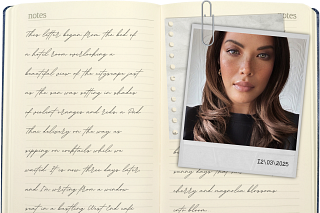 notes
This letter began from the bed of
a hotel room overlooking a
beautiful view of the cityscape just
as the sun was setting in shades
of violent oranges and reds. a Dad
thai delivery on the way as
sipping on cocktails while we
waited. It is now three days later
and I'm writing from a window
seat in a bustling West End cafe
notes
12\03\2025
sunny days
cherry and magnolia blossoms
into bloom